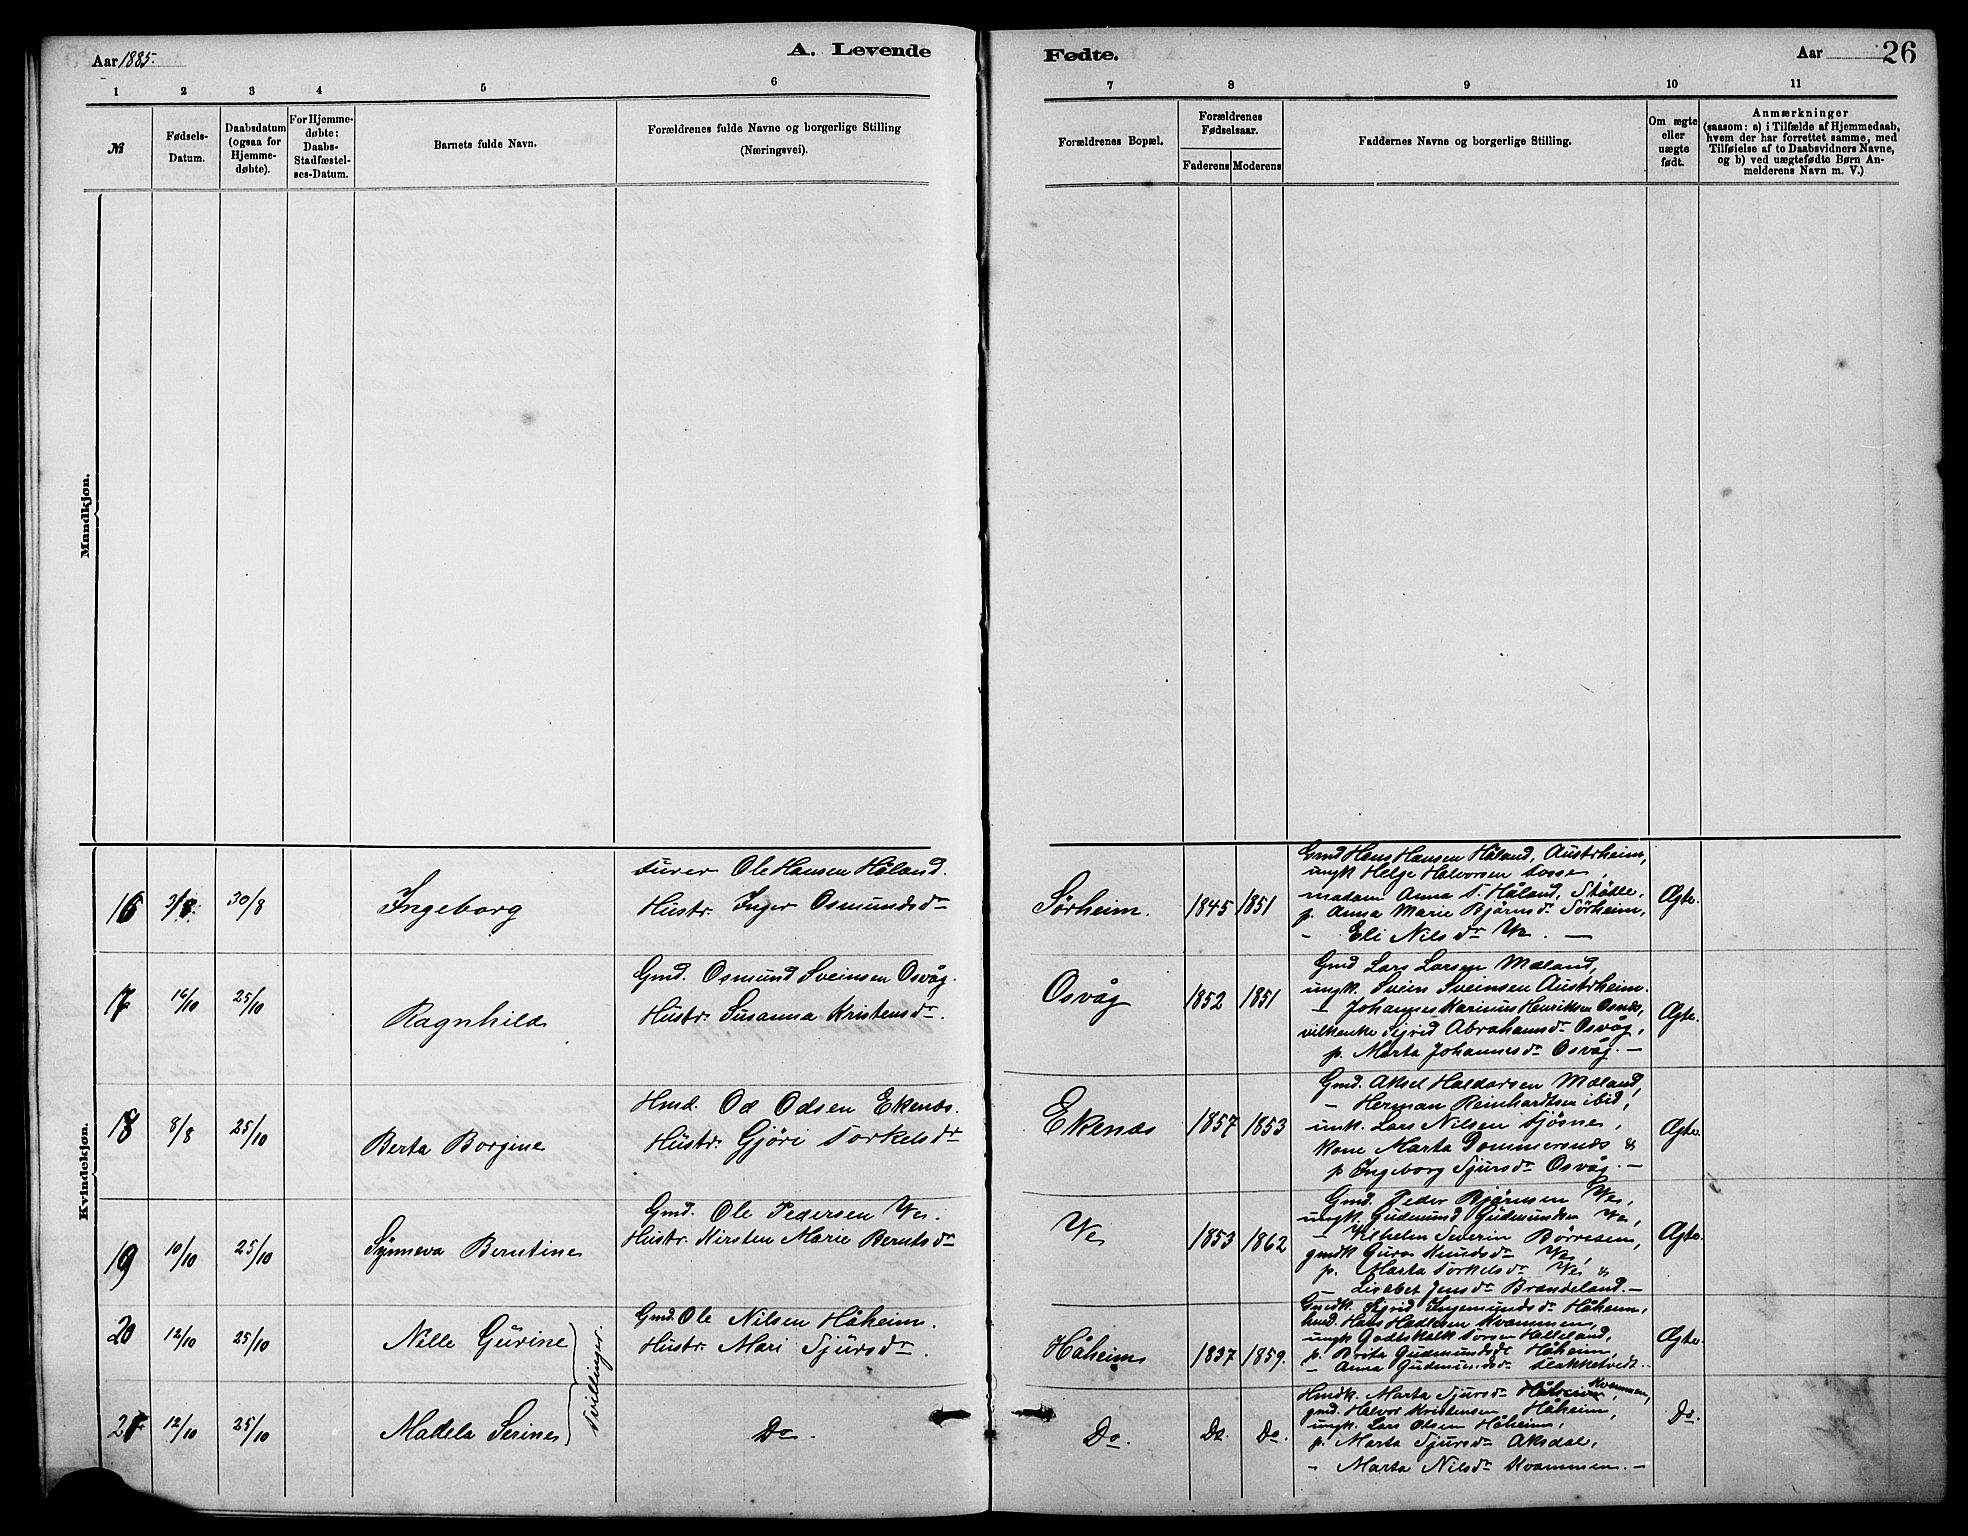 Aar 1885.
A. Levende
Fødte.
Aar
26
1 2 3 4 5 6 7 8 9 10 11
№
Fødsels-
Datum.
Daabsdatum
(ogsaa for
Hjemme-
døbte).
For Hjemme-
døbte:
Daabs-
Stadfæstel-
ses-Datum.
Barnets fulde Navn.
Forældrenes fulde Navne og borgerlige Stilling
(Næringsvei).
Forældrenes Bopæl.
Forældrenes
Fødselsaar.
Faderens Moderens
Faddernes Navne og borgerlige Stilling.
Om ægte
eller
uægte
født.
Anmærkninger
(saasom: a) i Tilfælde af Hjemmedaab,
hvem der har forrettet samme, med
Tilføielse af to Daabsvidners Navne,
og b) ved uægtefødte Børn An-
melderens Navn m. V.)
Mandkjøn.
Kvindekjøn.
16 3/8. 30/8 Ingeborg
Ole Hansen Håland.
Hustr. Inger Osmundsdr
Sørheim. 1845 1851
Gmd Hans Hansen Håland, Austrheim,
ungk Helge Halvorsen
madam Anna T. Håland, Stødle,
p. Anna Marie Bjørnsdr Sørheim,
- Eli Nilsdr Ve. —
Ægte.
17 16/10 25/10 Ragnhild
Gmd. Osmund Sveinsen Osvåg.
Hustr. Susanna Kristensdr.
Osvåg 1852 1851
Gmd Lars Larsen Mæland,
ungk. Svein Sveinsen Austrheim.
— Johannes Karinius Henriksen
Sigrid Abrahamsdr Osvåg,
p. Marta Johannesdr Osvåg. —
Ægte.
18 8/8 25/10 Berta Borgine
Hmd. Od Odsen Ekenæs.
Hustr. Gjøri Torkelsdr
Ekenæs 1857 1853
Gmd. Aksel Haldorsen Mæland,
— Herman Reinhardtsen ibid,
ungk. Lars Nilsen Sjøsnes,
Kone Marta &
p Ingeborg Sjursdr Osvåg. —
Ægte.
19 10/10 25/10 Synneva Berntine
Gmd. Ole Pedersen Ve.
Hustr. Kirsten Marie Berntsdr
Ve 1853 1862
Gmd. Peder Bjørnsen Ve,
ungk. Gudmund Gudmundsen Ve,
— Vilhelm Severin Børresen,
gmdk Guro Knudsdr Ve,
p. Marta Torkelsdr Ve &
— Lisabet Jensdr Brandeland. —
Ægte.
20 12/10 25/10 Nille Gurine
Tvillinger.
Gmd. Ole Nilsen Håheim.
Hustr. Mari Sjursdr.
Håheim 1837 1859.
Gmdk. Sigrid Ingemundsdr Håheim,
hmd. Hans Kvammen,
ungk Godtskalk Torsen Helleland,
p. Brita Gudmundsdr Håheim,
— Anna Gudmundsdr Slakketvedt.
Ægte.
21 12/10 25/10 Madela Serine
Do.
Do. Do. Do.
Hmdk. Marta Sjursdr Håheim Kvammen,
gmd. Halvor Kristensen Håheim,
ungk. Lars Olsen Håheim,
p. Marta Sjursdr Aksdal,
- Marta Nilsdr Kvammen. —
Do.